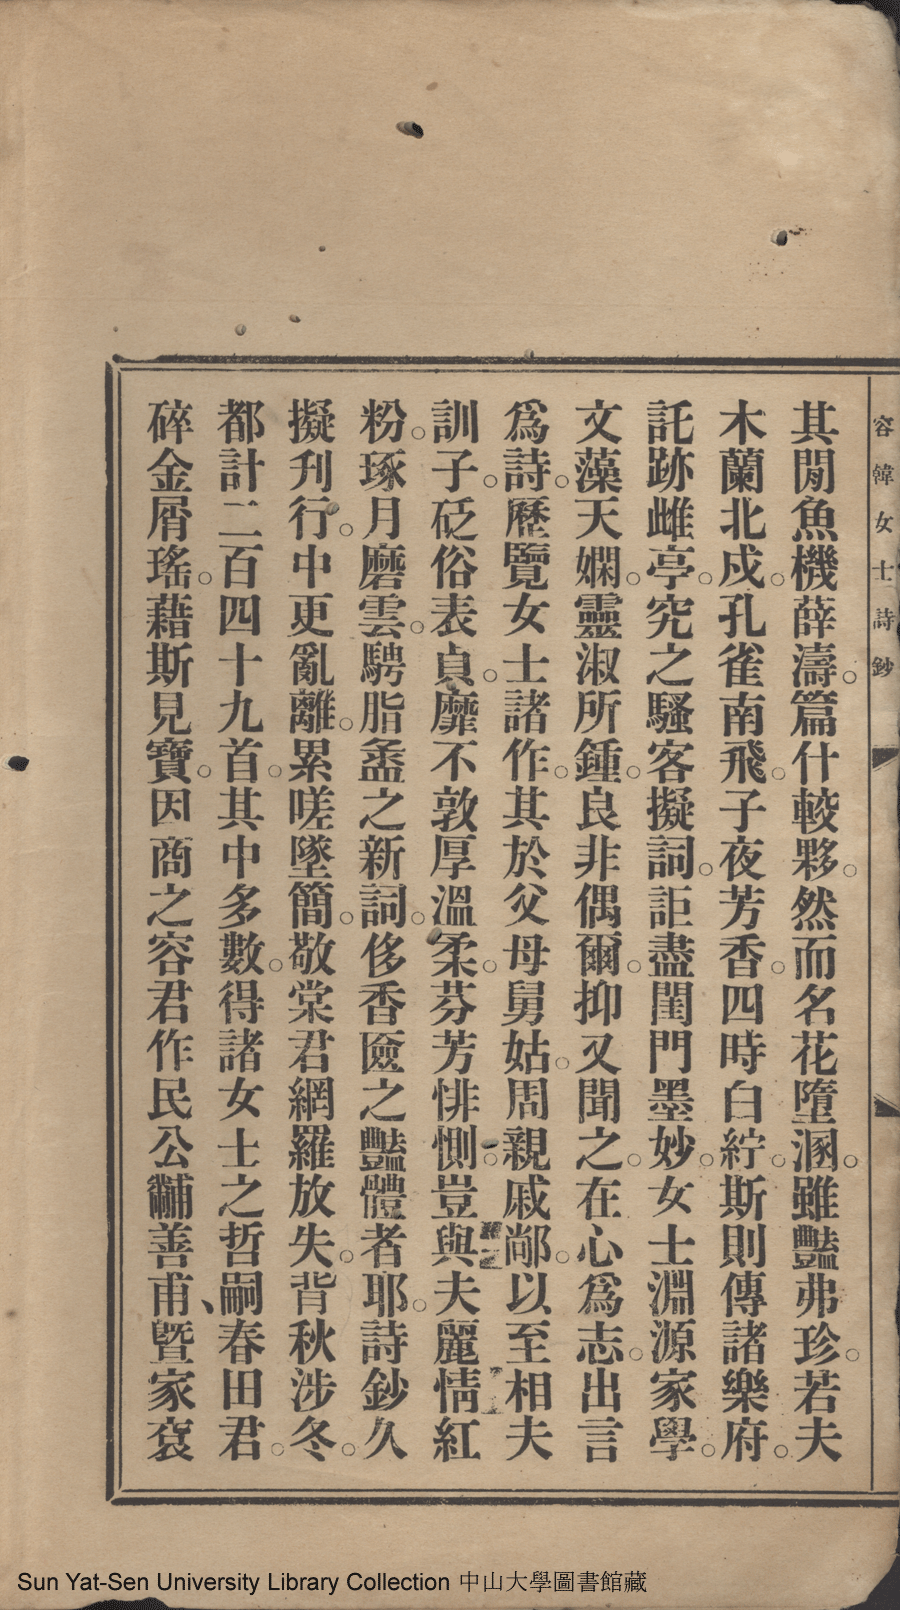 容韓女士詩鈔
其閒魚機薛濤。篇什較夥。然而名花墮溷。雖豔弗珍。若夫
木蘭北戍。孔雀南飛。子夜芳香。四時白紵。斯則傳諸樂府。
託跡雌亭。究之騷客擬詞。詎盡閨門墨妙。女士淵源家學。
文藻天嫻。靈淑所鍾。良非偶爾。抑又聞之。在心爲志。出言
爲詩。歷覽女士諸作。其於父母舅姑。周親戚鄰。以至相夫
訓子。砭俗表貞。靡不敦厚溫柔。芬芳悱惻。豈與夫麗情紅
粉。琢月磨雲。騁脂盝之新詞。侈香匳之豔體者耶。詩鈔久
擬刋行。中更亂離。累嗟墜簡。敬棠君網羅放失。背秋涉冬。
都計二百四十九首。其中多數。得諸女士之哲嗣春田君。
碎金屑瑤。藉斯見寶。因商之容君作民公黼善甫、曁家袞
Sun Yat-Sen University Library Collection 中山大學圖書館藏